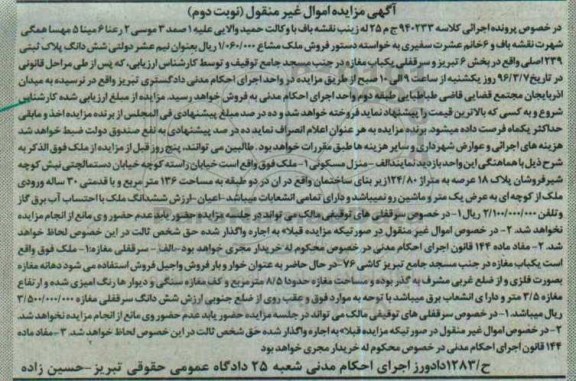 آگهی مزایده اموال غیر منقول (نوبت دوم)
در خصوص پرونده اجرائی کلاسه ۹۴۰۲۳۳ ج م ۲۵ له زینب نقشه باف با وکالت حمید والایی علیه ۱ صمد ۳ موسی ۲ رعنا ۶ مینا ۵ مهسا همگی
شهرت نقشه باف و ۶ خانم عشرت سفیری به خواسته دستور فروش ملک مشاع ۱/۰۶۰/۰۰۰ ریال بعنوان نیم عشر دولتی شش دانگ پلاک ثبتی
۲۳۹ اصلی واقع در بخش ۶ تبریز و سرقفلی یکباب مغازه در جنب مسجد جامع توقیف و توسط کارشناس ارزیابی، که پس از طی مراحل قانونی
در تاریخ ۹۶/۳/۷ روز یکشنبه از ساعت ۹ الی ۱۰ صبح از طریق مزایده در واحد اجرای احکام مدنی دادگستری تبریز واقع در نرسیده به میدان
آذربایجان مجتمع قضایی قاضی طباطبایی طبقه دوم واحد اجرای احکام مدنی به فروش خواهد رسید. مزایده از مبلغ ارزیابی شده کارشناس
شروع و به کسی که بالاترین قیمت را پیشنهاد نماید فروخته خواهد شد و ده در صد مبلغ پیشنهادی فی المجلس از برنده مزایده اخذ و مابقی
حداکثر یکماه فرصت داده میشود. برنده مزایده به هر عنوان اعلام انصراف نماید ده در صد پیشنهادی به نفع صندوق دولت ضبط خواهد شد
هزینه های اجرائی و عوارض شهرداری و سایر هزینه ها طبق مقررات خواهد بود. طالبین می توانند، پنج روز قبل از مزایده از ملک فوق الذکر به
شرح ذیل با هماهنگی این واحد بازدید نماید الف - منزل مسکونی ۱- ملک فوق واقع است خیابان راسته کوچه خیابان دستمالچی نبش کوچه
شیرفروشان پلاک ۱۸ عرصه به متراژ ۱۲۴/۸۰ زیر بنای ساختمان واقع در ان در دو طبقه به مساحت ۱۳۶ متر مربع و با قدمتی ۳۰ ساله ورودی
ملک از کوچه ای به عرض یک متر و ماشین رو نمیباشد و دارای تمامی انشعابات میباشد - اعیان - ارزش ششدانگ ملک با احتساب آب برق گاز
و تلفن ۲/۱۰۰/۰۰۰/۰۰۰ ریال ۱- در خصوص سرقفلی های توقیفی مالک می تواند در جلسه مزایده حضور یابد عدم حضور وی مانع از انجام مزایده
نخواهد شد. ۲- در خصوص اموال غیر منقول در صورتیکه مزایده قبلا به اجاره واگذار شده حق شخص ثالث در این خصوص لحاظ خواهد
شد. ۲- مفاد ماده ۱۴۴ قانون اجرای احکام مدنی در خصوص محکوم له خریدار مجری خواهد بود - الف - سرقفلی مغازه: ۱- ملک فوق واقع
است یکباب مغازه در جنب مسجد جامع تبریز کاشی ۷۶ - در حال حاضر به عنوان خوار و بار فروش و آجیل فروش استفاده می شود دهانه مغازه
بصورت فلزی و از ضلع غربی مشرف به گذر بوده و مساحت مغازه حدودا ۸/۵ متر مربع و کف مغازه سنگی و دیوار ها رنگ امیزی شده و ارتفاع
مغازه ۳/۵ متر و دارای انشعاب برق میباشد با توجه به موارد فوق و عقب روی از ضلع جنوبی ارزش شش دانگ سرقفلی مغازه ۳/۵۰۰/۰۰۰/۰۰۰
ریال میباشد. ۱- در خصوص سرقفلی های توقیفی مالک می تواند در جلسه مزایده حضور یابد عدم حضور وی مانع از انجام مزایده نخواهد شد.
۲- در خصوص اموال غیر منقول در صورتیکه مزایده قبلا به اجاره واگذار شده حق شخص ثالث در این خصوص لحاظ خواهد شد. ۳- مفاد ماده
۱۴۴ قانون اجرای احکام مدنی در خصوص محکوم له خریدار مجری خواهد بود
ح/۱۲۸۳ دادورز اجرای احکام مدنی شعبه ۲۵ دادگاه عمومی حقوقی تبریز - حسین زاده